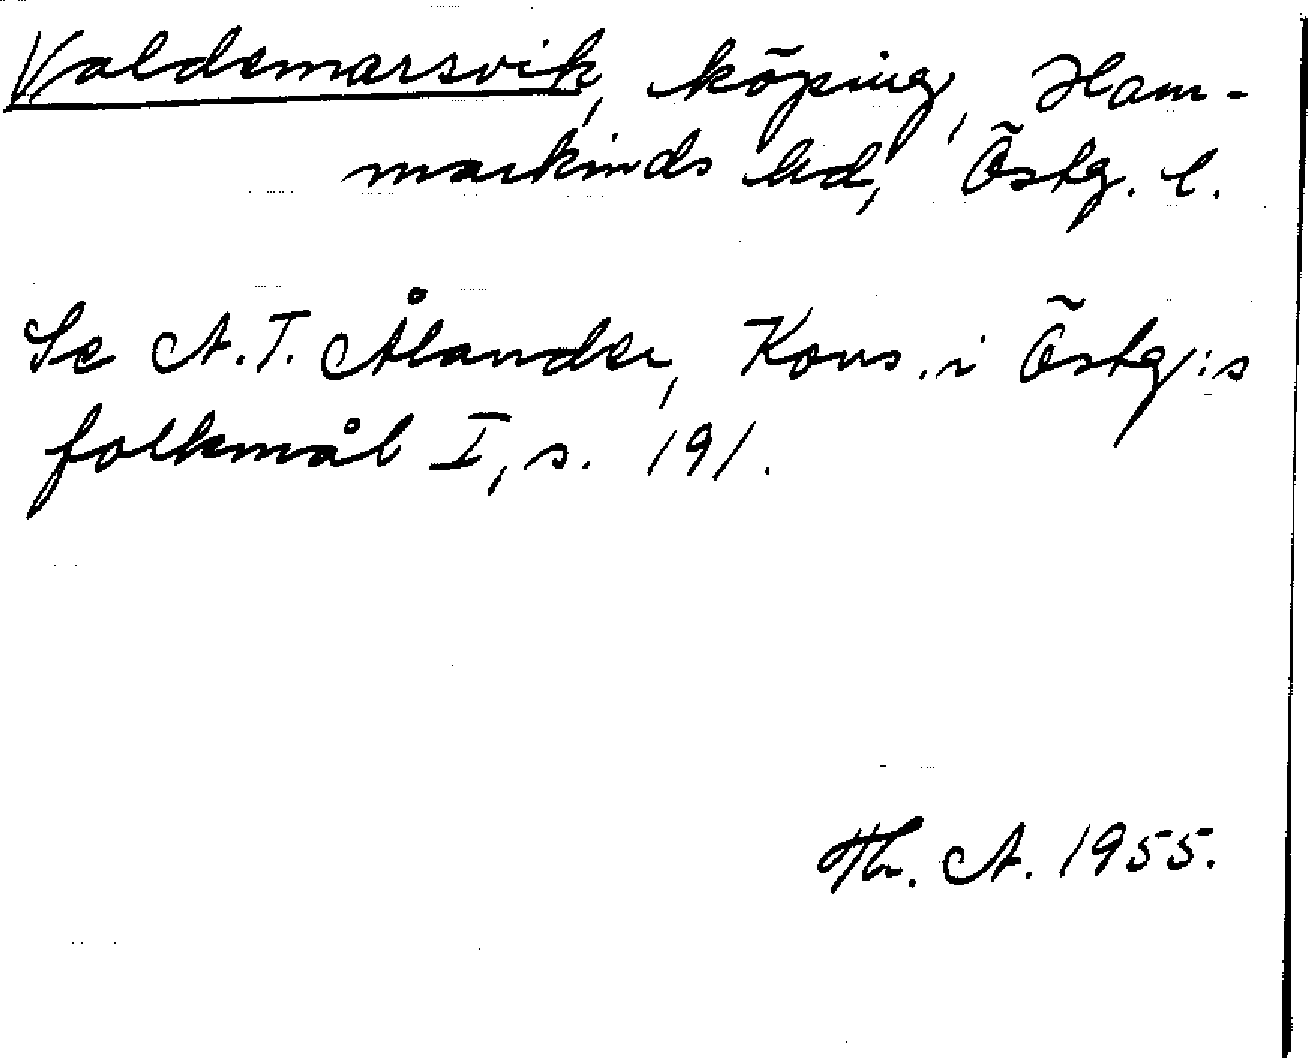 Valdemarsvik, köping, Ham-
markinds hd, Östg. l.
Se A. T. Ålander, Kons. i Östg:s
folkmål I, s. 191.
Th. A. 1955.